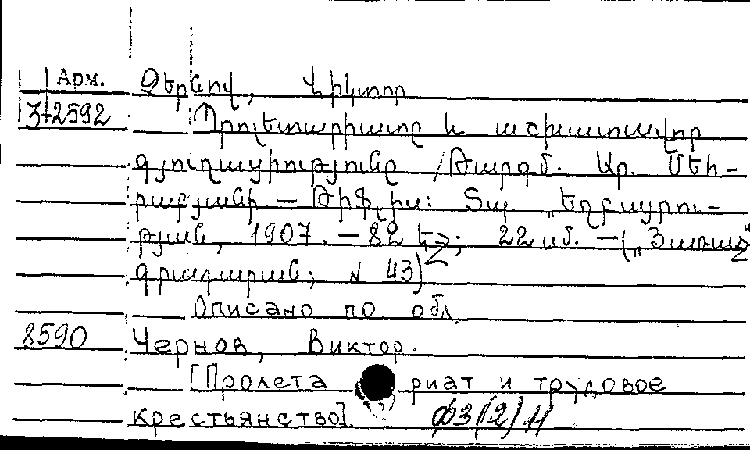 Арм. Չերնով, Վիկտոր
3+2592 Պրոլետարիատը և աշխատավոր
գյուղացիությունը /Թարգմ. Ար. Մեհ-
րաբյանի — Թիֆլիս: Տպ. „Եղբայրու-
թյան, 1907. — 82 էջ; 22 սմ. — („Յառաջ"
գրադարան; № 43)
Описано по обл.
8590 Чернов, Виктор.
[Пролета риат и трудовое
крестьянство].